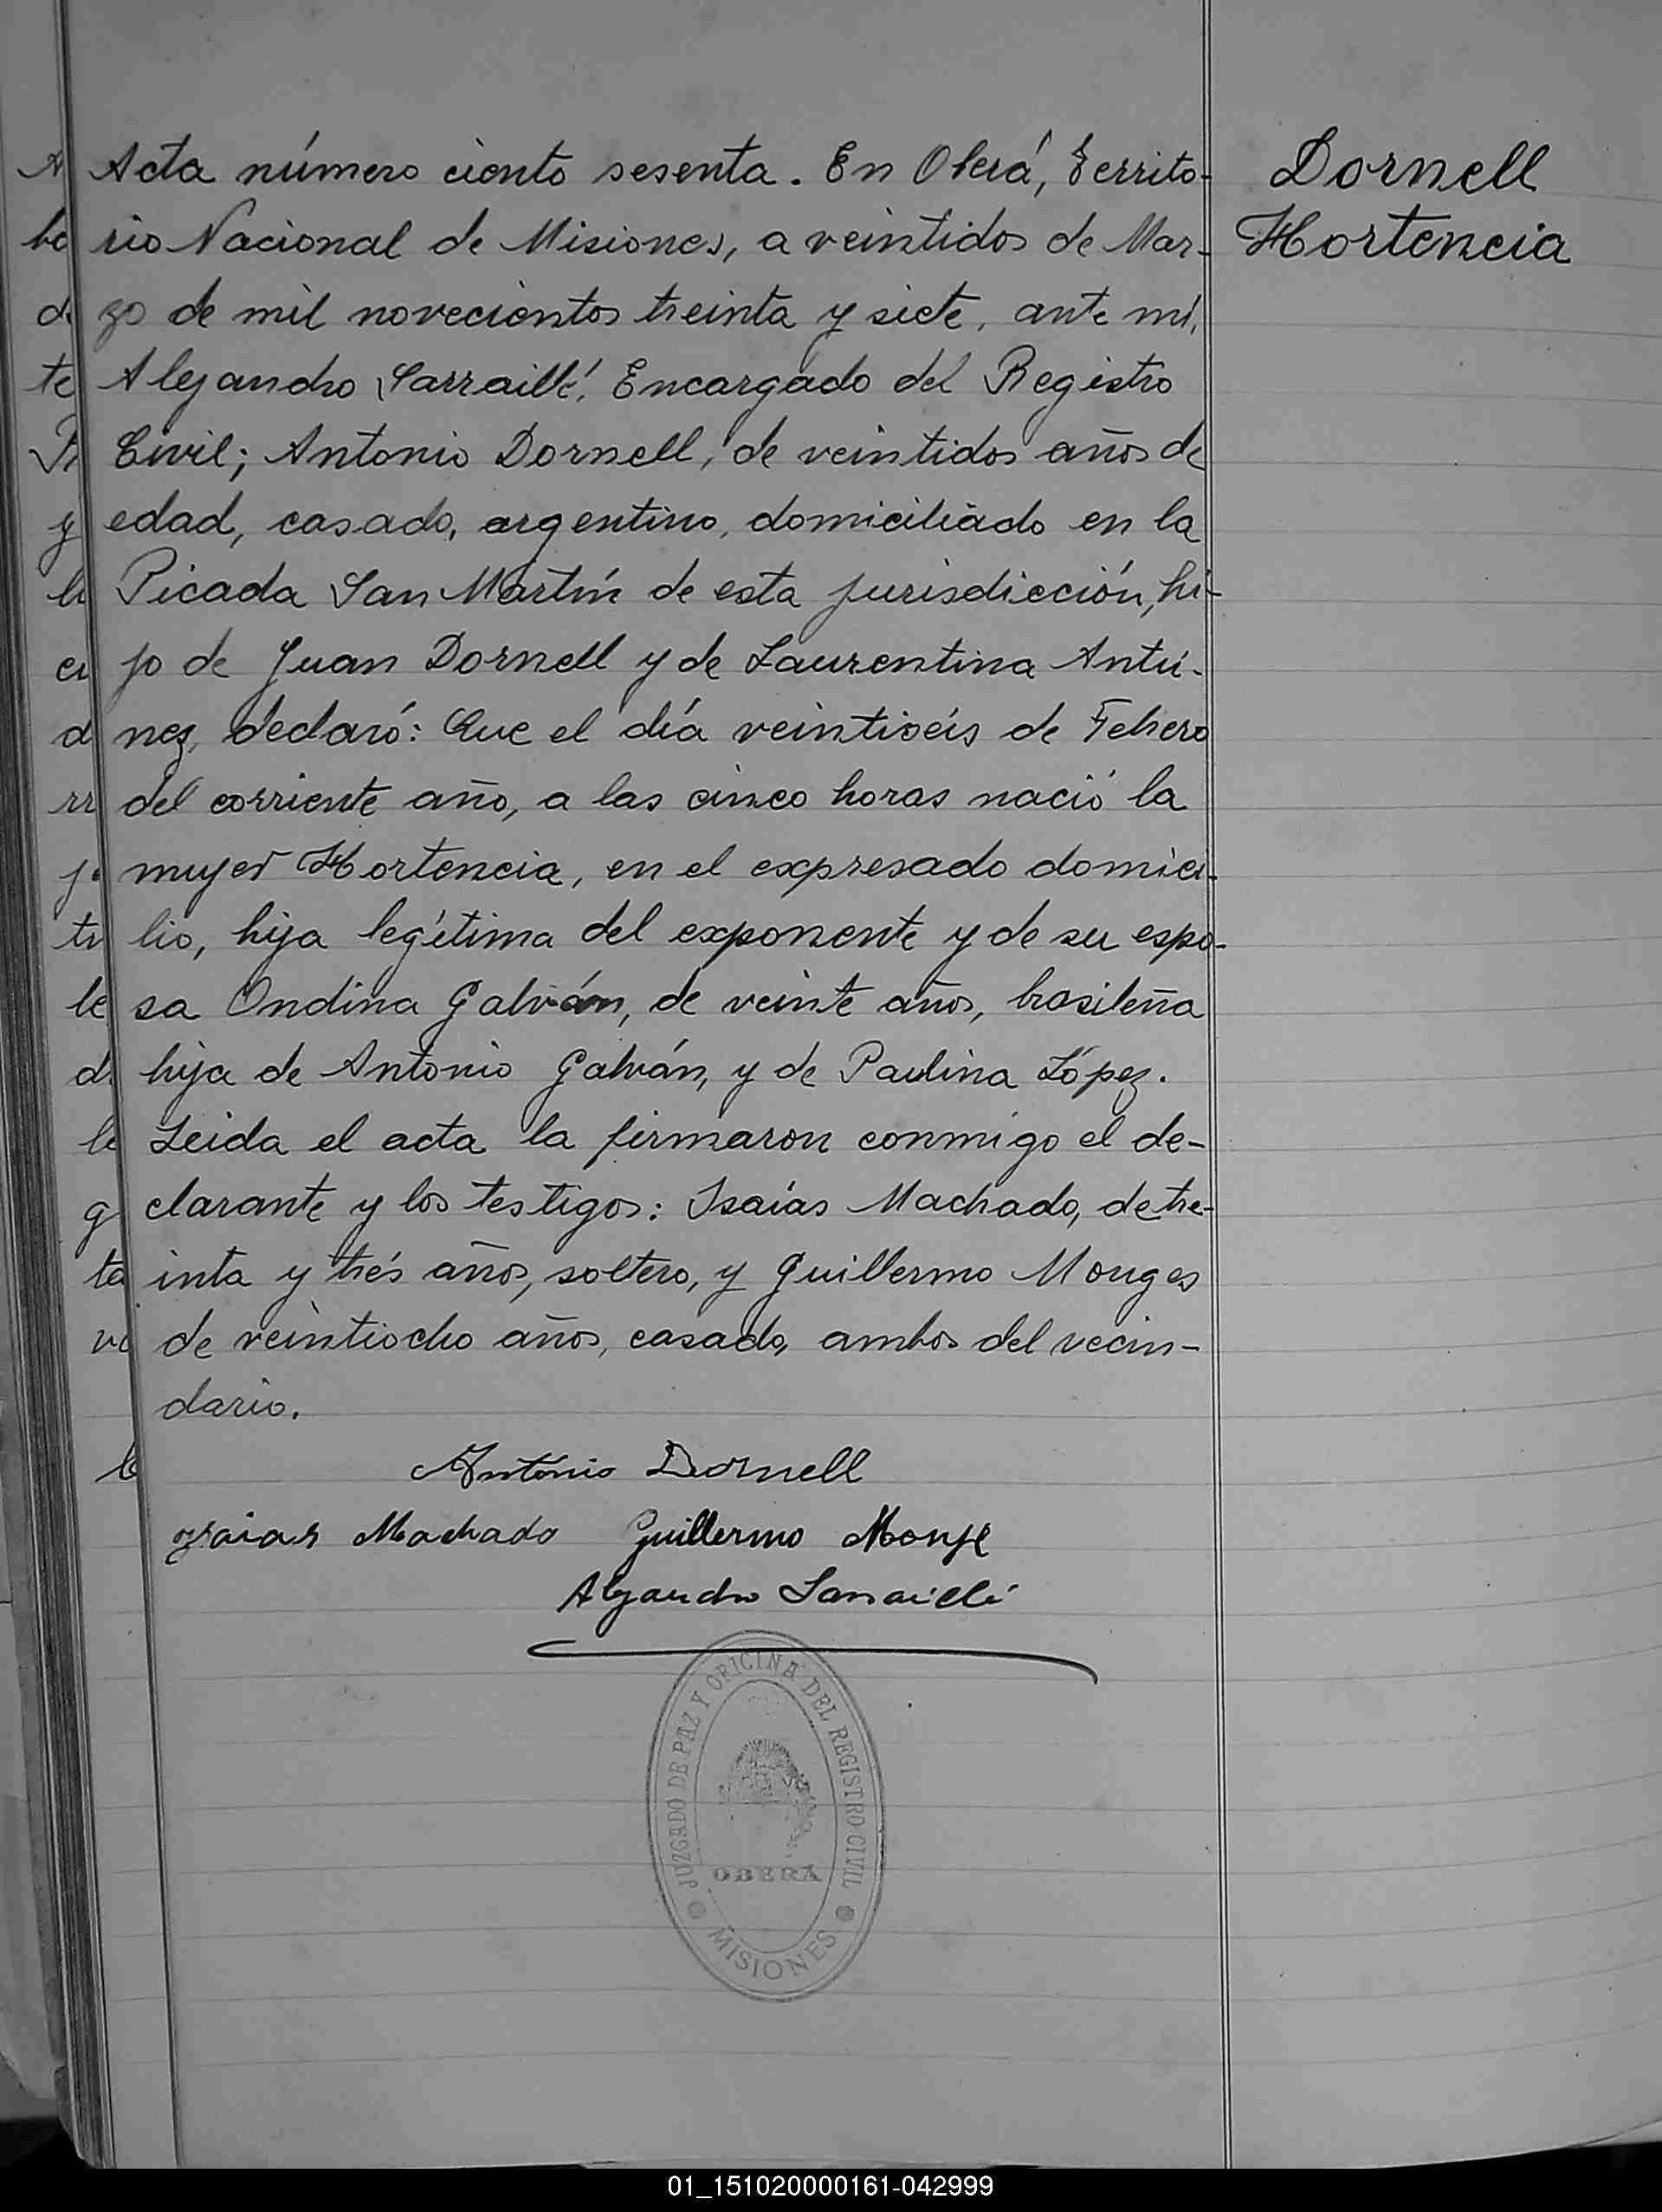 Dornell
Hortencia
Acta número ciento sesenta. En Oberá, Territo-
rio Nacional de Misiones, a veintidos de Mar-
zo de mil novecientos treinta y siete, ante mí,
Alejandro Sarraillé, Encargado del Registro
Civil; Antonio Dornell, de veintidos años de
edad, casado, argentino, domiciliado en la
Picada San Martín de esta jurisdicción, hi-
jo de Juan Dornell y de Laurentina Antú-
nez, declaró: Que el día veintiseis de Febrero
del corriente año, a las cinco horas nació la
mujer Hortencia, en el expresado domici-
lio, hija legítima del exponente y de su espo-
sa Ondina Galván, de veinte años, brasileña
hija de Antonio Galván, y de Paulina López.
Leida el acta la firmaron conmigo el de-
clarante y los testigos: Isaías Machado, de tre-
inta y trés años, soltero, y Guillermo Monges
de veintiocho años, casado, ambos del vecin-
dario.
Antonio Dornell
Isaias Machado Guillermo Monje
Alejandro Sarraillé
JUZGADO DE PAZ Y OFICINA DEL REGISTRO CIVIL
OBERÁ
MISIONES
01_151020000161-042999